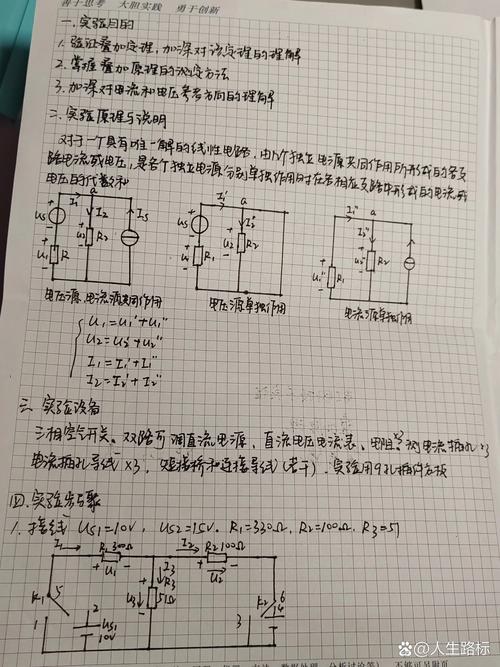 善于思考 大胆实践 勇于创新
一.实验目的
1.验证叠加定理,加深对该定理的理解
2.掌握叠加原理的测定方法
3.加深对电流和电压参考方向的理解
二.实验原理与说明
对于一个具有唯一解的线性电路,由几个独立电源共同作用所形成的各支
路电流或电压,是各个独立电源分别单独作用时在各相应支路中形成的电流或
电压的代数和
I1 a I2 Is
Us U1 R U2 R2
I1' a I2'
Us U1' R1 U2' R2
I1'' a I2''
U1'' R1 U2'' R2
电压源、电流源共同作用
电压源单独作用
电流源单独作用
U1=U1'+U1''
U2=U2'+U2''
I1=I1'+I1''
I2=I2'+I2''
三 实验设备
三相空气开关、双路可调直流电源、直流电压电流表、电阻、测电流插孔×3
电流插孔导线×3,短接桥和连接导线(若干).实验用9孔插件方板
四.实验步骤
1.接线 US1=10V, US2=15V. R1=330Ω, R2=100Ω, R3=51
I1 R1 300Ω I2 R2 100Ω
U1 I3 U2
K1 5 U3 R3 51Ω K2 6 4
1 2 US1 10V 3
百家号/人生路标